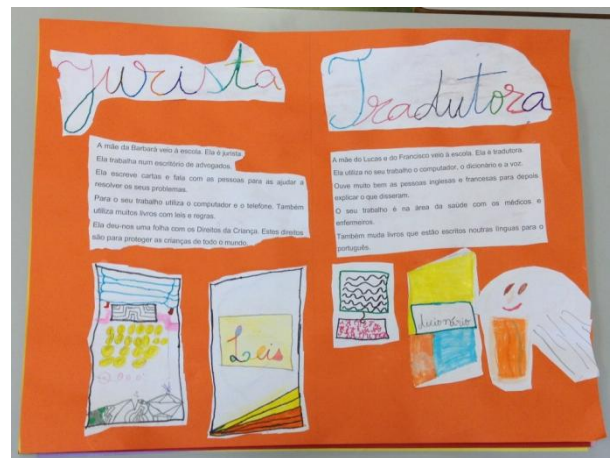 Jurista
A mãe da Barbara veio à escola. Ela é jurista.
Ela trabalha num escritório de advogados.
Ela escreve cartas e fala com as pessoas para as ajudar a
resolver os seus problemas.
Para o seu trabalho utiliza o computador e o telefone. Também
utiliza muitos livros com leis e regras.
Ela deu-nos uma folha com os Direitos da Criança. Estes direitos
são para proteger as crianças de todo o mundo.
Leis
Tradutora
A mãe do Lucas e do Francisco veio à escola. Ela é tradutora.
Ela utiliza no seu trabalho o computador, o dicionário e a voz.
Ouve muito bem as pessoas inglesas e francesas para depois
explicar o que disseram.
O seu trabalho é na área da saúde com os médicos e
enfermeiros.
Também muda livros que estão escritos noutras línguas para o
português.
dicionário